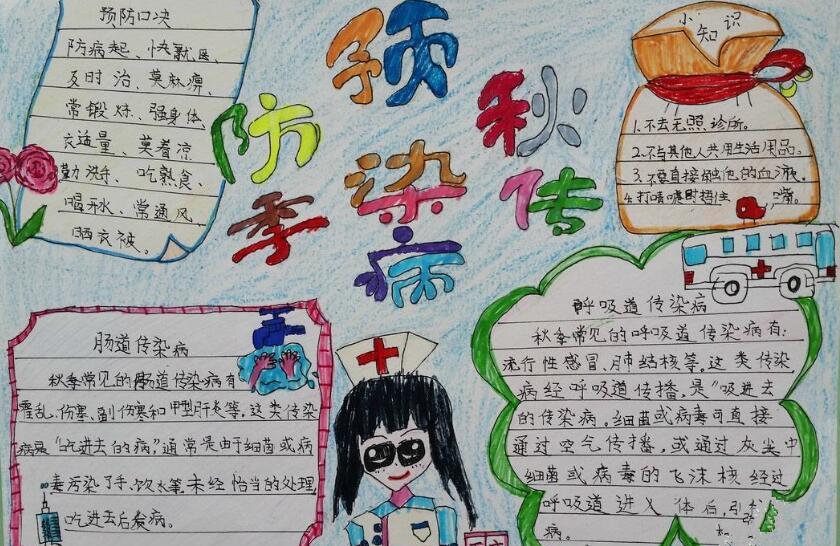 预防口诀
防病起、快就医、
及时治、莫麻痹、
常锻炼、强身体、
衣适量、莫着凉
勤洗手、吃熟食、
喝开水、常通风、
晒衣被。
预防
秋季
传染病
小知识
1.不去无照诊所。
2.不与其他人共用生活用品。
3.不要直接触他的血液。
4.打喷嚏时捂住嘴。
肠道传染病
秋季常见的肠道传染病有
霍乱、伤寒、副伤寒和甲型肝炎等。这类传染
病是"吃进去的病"通常是由于细菌或病
毒污染了手、饮水等。未经恰当的处理
吃进去后发病。
呼吸道传染病
秋季常见的呼吸道传染病有:
流行性感冒、肺结核等。这类传染
病经呼吸道传播,是"吸进去
的传染病。细菌或病毒可直接
通过空气传播,或通过灰尘中
细菌或病毒的飞沫核经过
呼吸道进入体后,引
病。